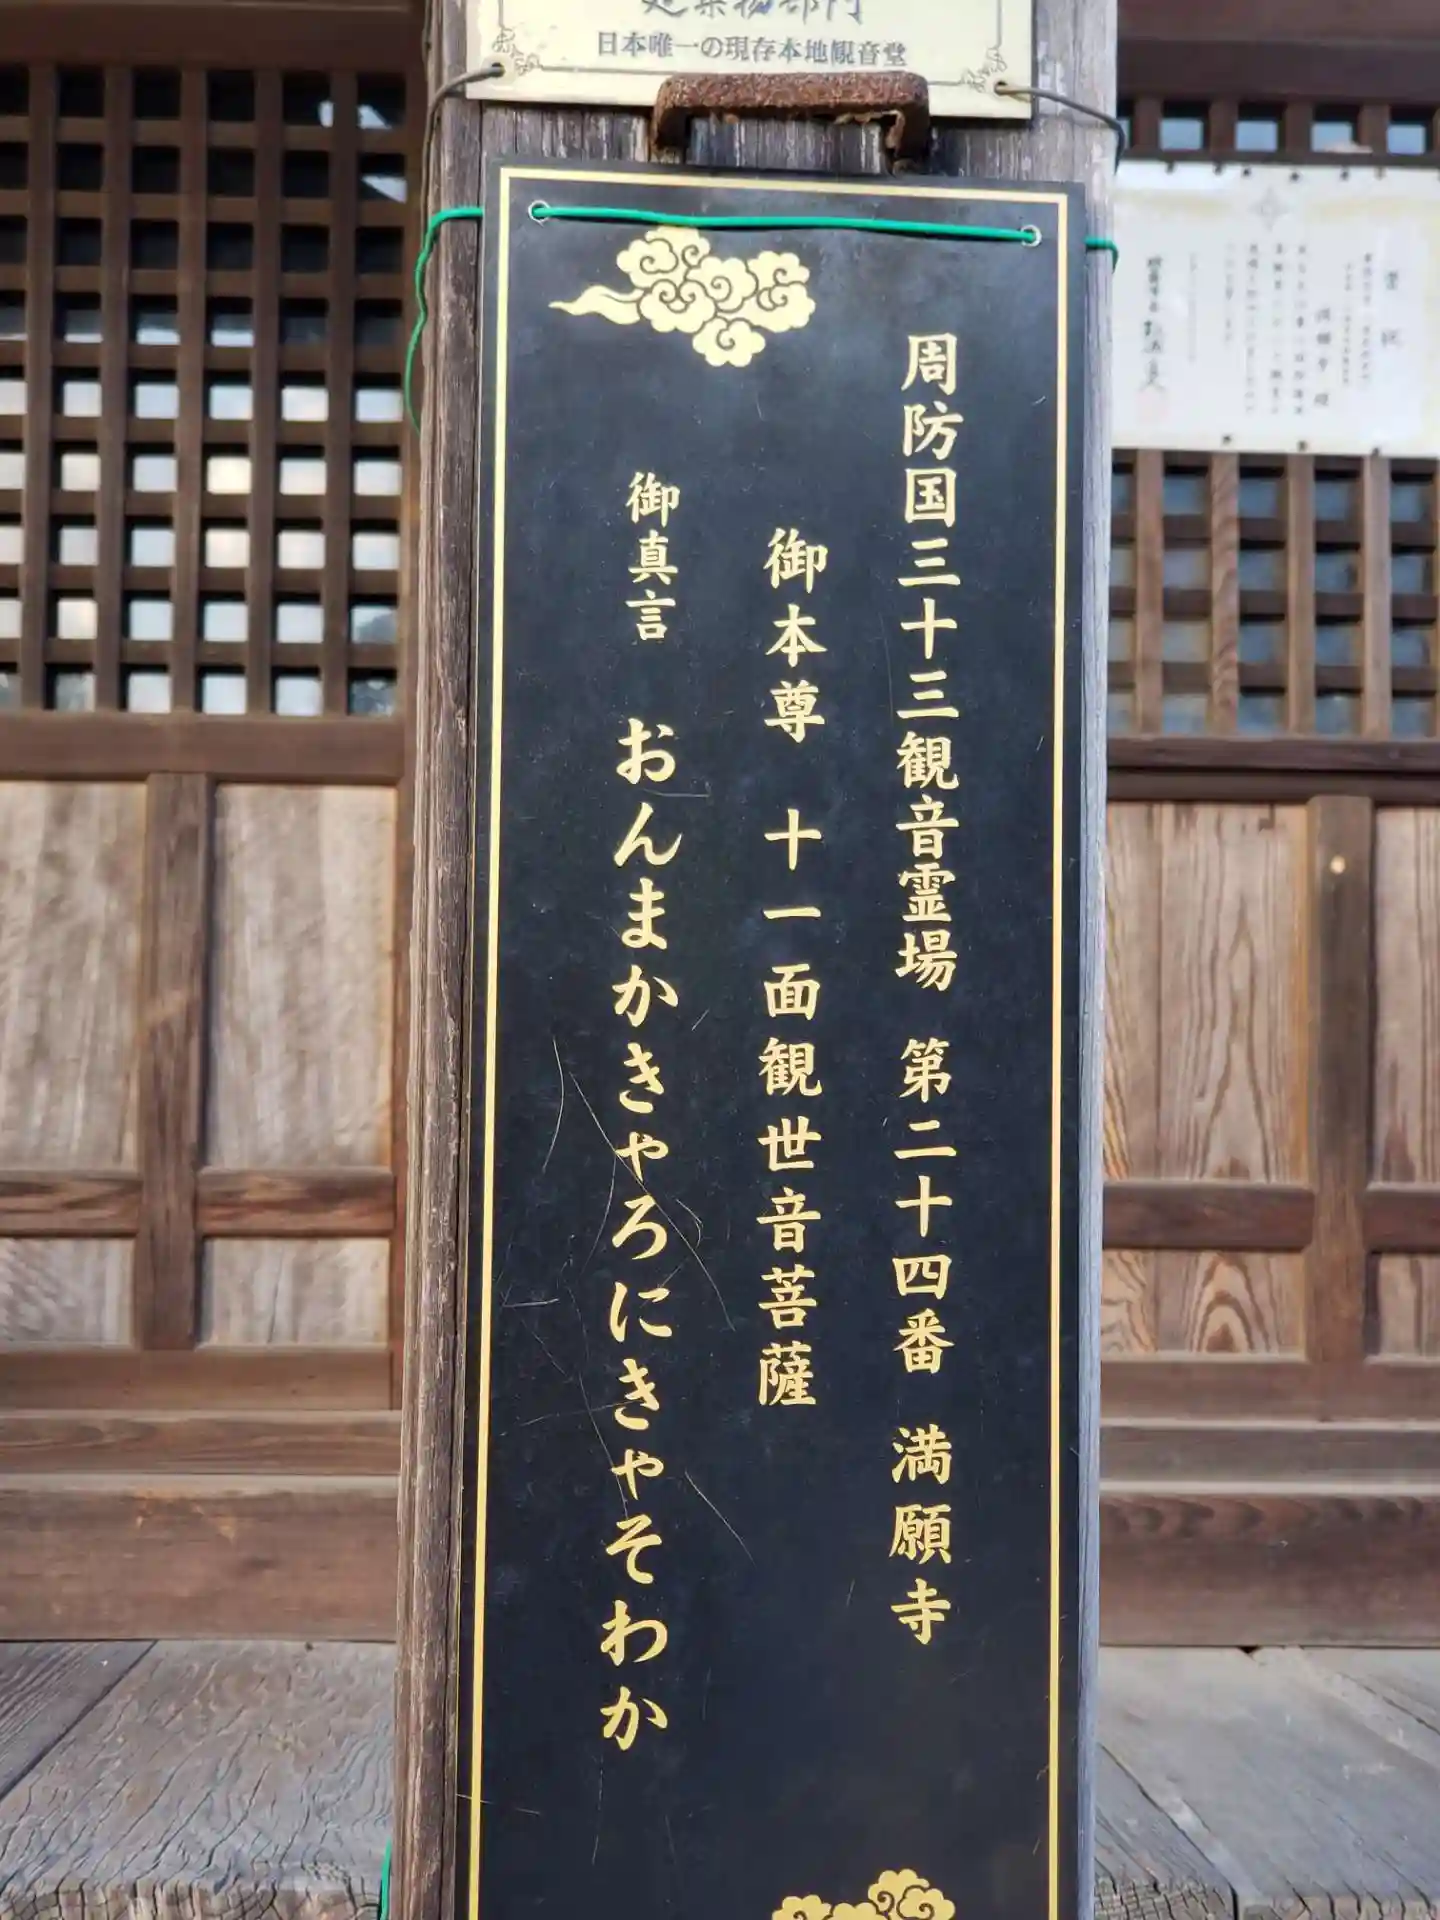 建築物部門
日本唯一の現存本地観音堂
周防国三十三観音霊場 第二十四番 満願寺
御本尊 十一面観世音菩薩
御真言 おんまかきゃろにきゃそわか